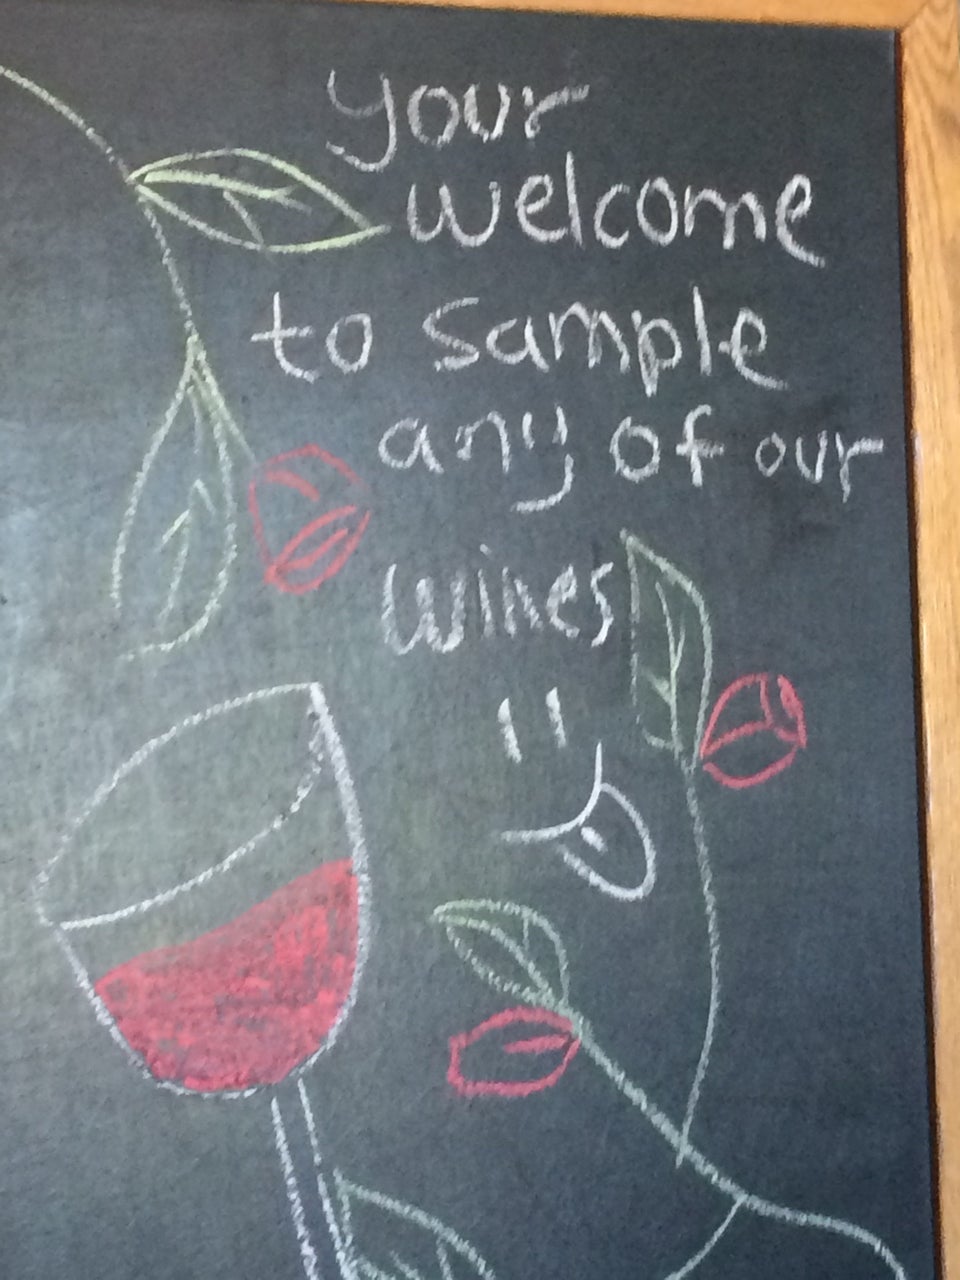 your
welcome
to sample
any of our
wines